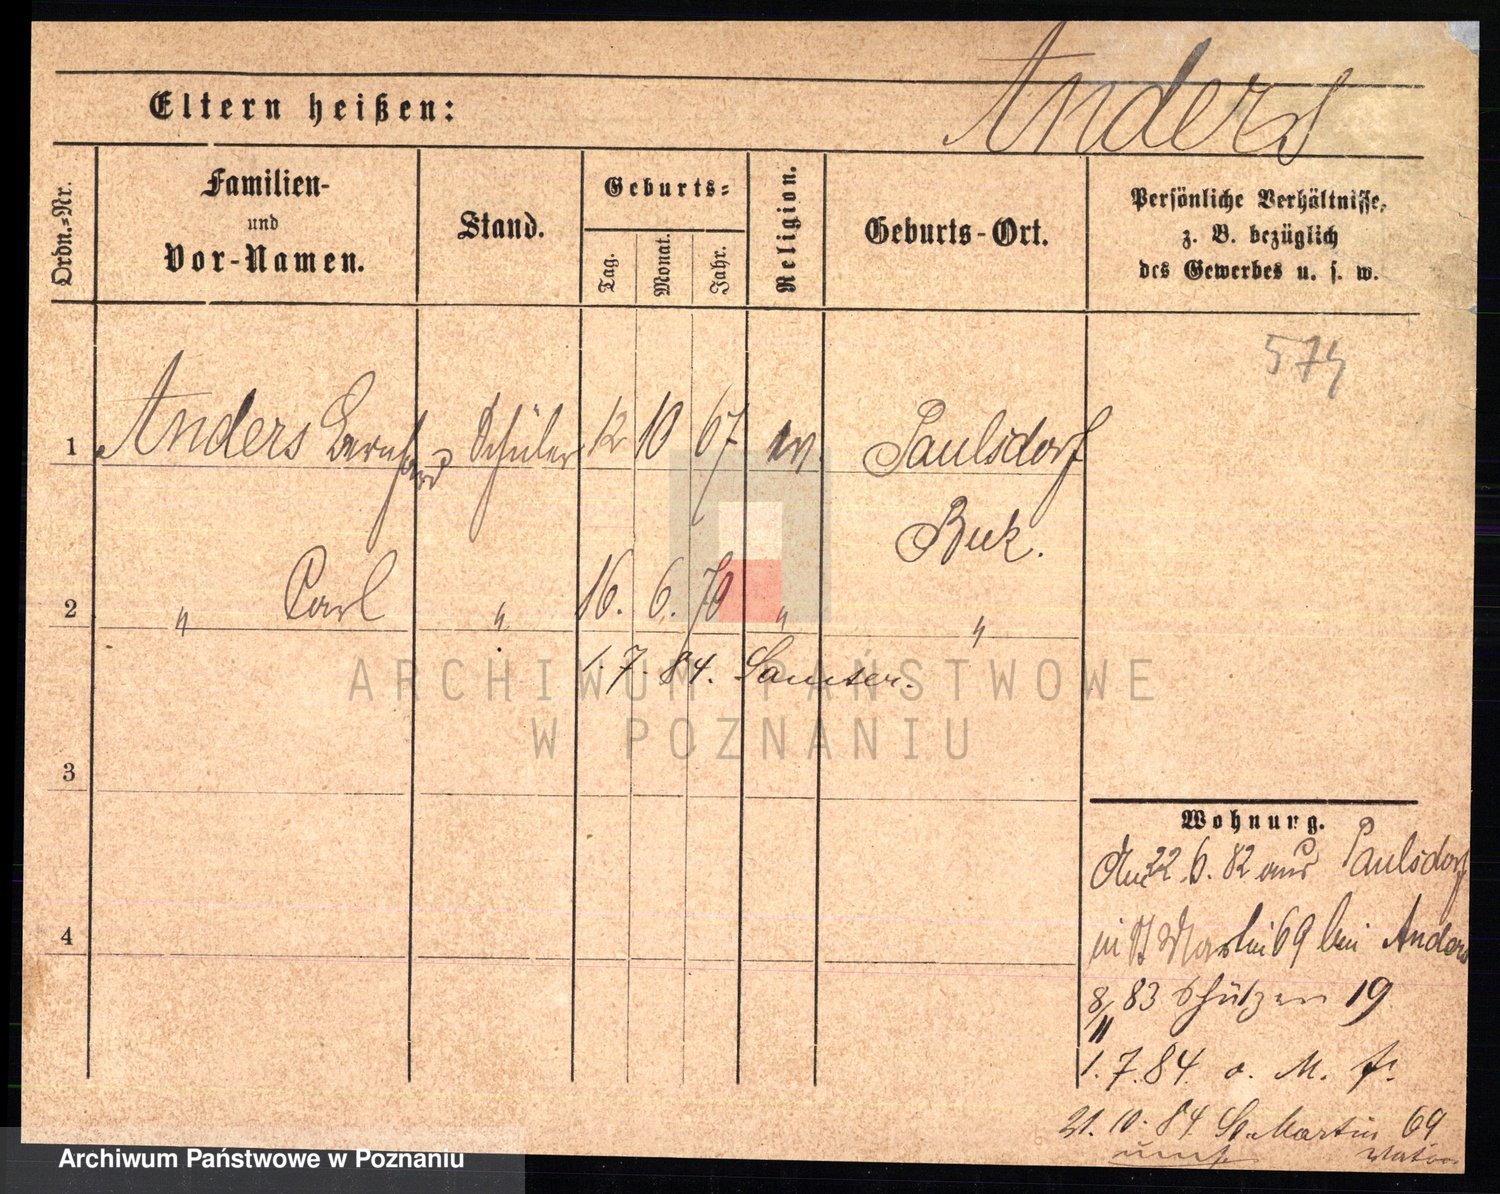 Anders
Eltern heißen:
Ordn.-Nr.
Familien-
und
Vor-Namen.
Stand.
Geburts-
Tag.
Monat.
Jahr.
Religion.
Geburts-Ort.
Persönliche Verhältnisse,
z. B. bezüglich
des Gewerbes u. s. w.
574
1 Anders Bernhard Schüler 12 10 67 ev. Paulsdorf
Buk.
2 " Carl " 16. 6. 70 " "
1. 7. 84. Samter.
ARCHIWUM PAŃSTWOWE
W POZNANIU
3
Wohnung.
Am 22.6.82 aus Paulsdorf
in St Martin 69 bei Anders
4
8/11 83 Schützen 19
1.7.84. o. M. f.
21.10.84 St. Martin 69
Archiwum Państwowe w Poznaniu